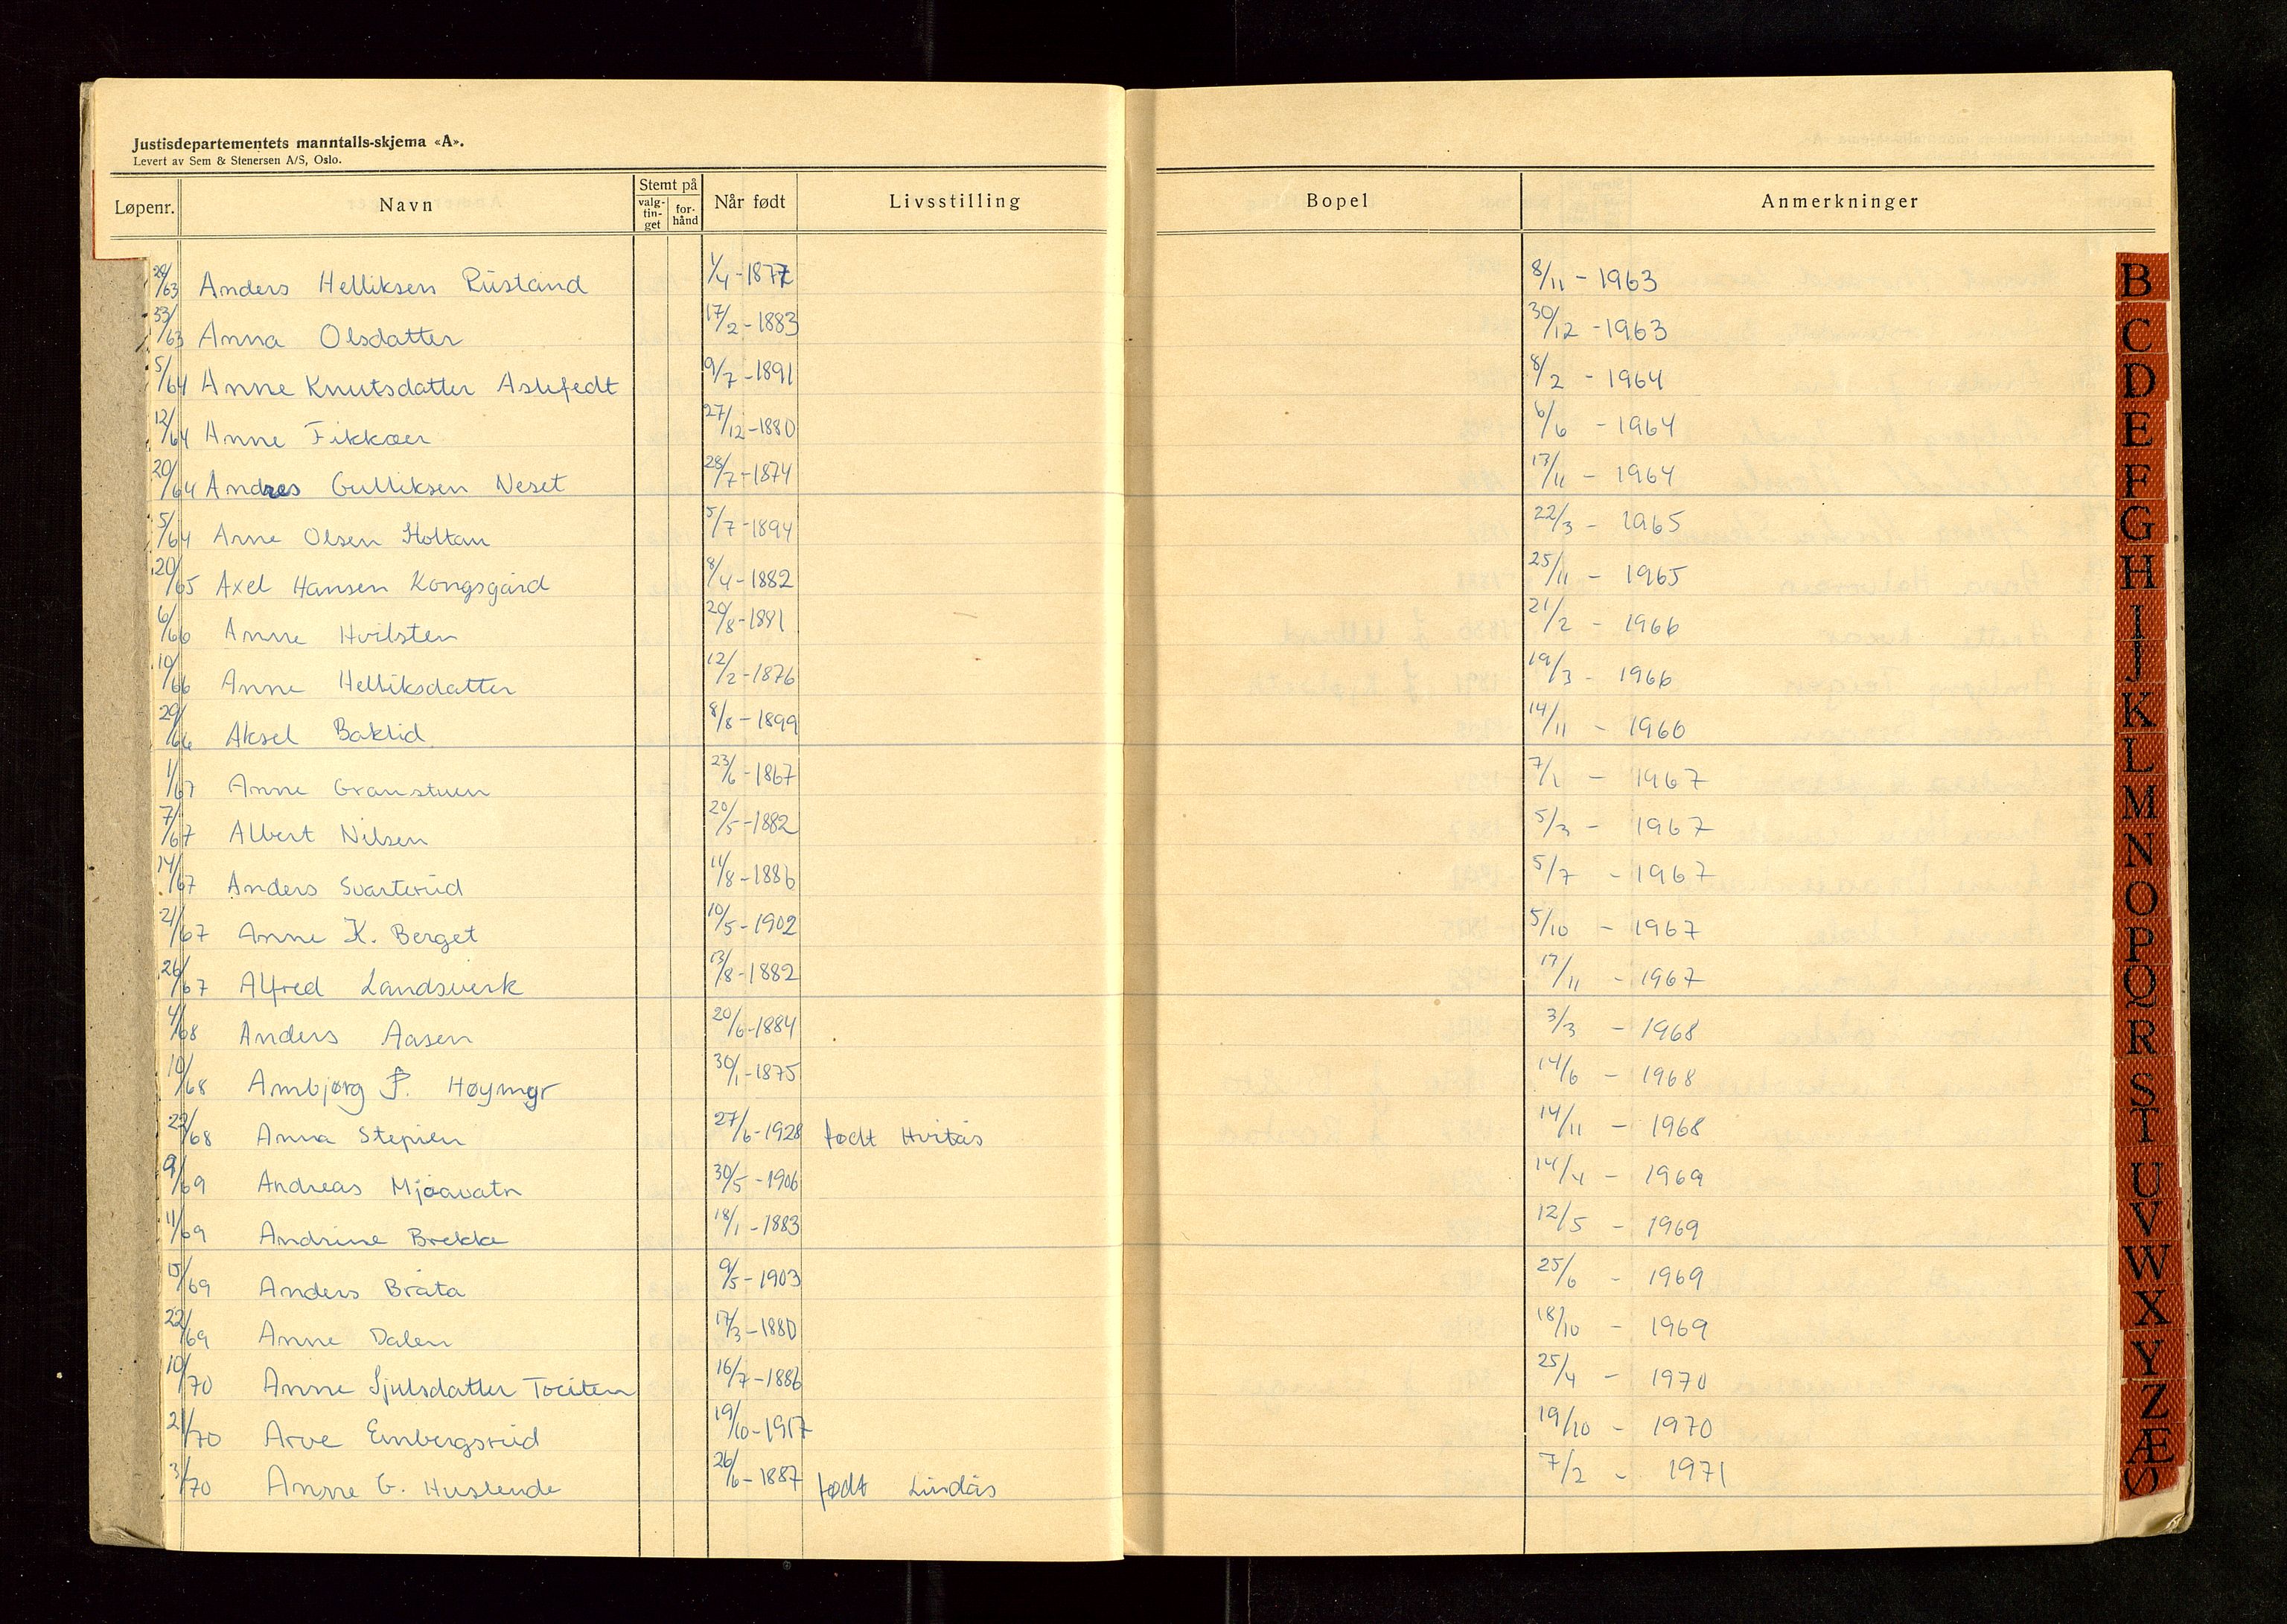 Justisdepartementets manntalls-skjema «A».
Levert av Sem & Stenersen A/S, Oslo.
Løpenr. Navn Stemt på valg-tin-get for-hånd Når født Livsstilling Bopel Anmerkninger
28/63 Anders Helliksen Rustand 1/4-1877 8/11 - 1963
33/63 Anna Olsdatter 17/2-1883 30/12 - 1963
5/64 Anne Knutsdatter Aslefedt 9/7-1891 8/2 - 1964
12/64 Anne Fikkaer 27/12-1880 6/6 - 1964
20/64 Andres Gulliksen Neset 28/7-1874 17/11 - 1964
5/64 Arne Olsen Holtan 5/7-1894 22/3 - 1965
20/65 Axel Hansen Kongsgård 8/4-1882 25/11 - 1965
6/66 Anne Hvilsten 20/8-1881 21/2 - 1966
10/66 Anne Helliksdatter 12/2-1876 19/3 - 1966
29/66 Aksel Baklid 8/8-1899 14/11 - 1966
1/67 Anne Granstuen 23/6-1867 7/1 - 1967
7/67 Albert Nilsen 20/5-1882 5/3 - 1967
14/67 Anders Svarterud 11/8-1886 5/7 - 1967
21/67 Anne K. Berget 10/5-1902 5/10 - 1967
26/67 Alfred Landsverk 13/8-1882 17/11 - 1967
4/68 Anders Aasen 20/6-1884 3/3 - 1968
10/68 Ambjørg P. Høymyr 30/1-1875 14/6 - 1968
22/68 Anna Stepien 27/6-1928 født Hvitås 14/11 - 1968
9/69 Andreas Mjøavatn 30/5-1906 14/4 - 1969
11/69 Andrine Brekke 18/1-1883 12/5 - 1969
15/69 Anders Bråta 9/5-1903 25/6 - 1969
22/69 Anne Dalen 17/3-1880 18/10 - 1969
10/70 Anne Sjulsdatter 16/7-1886 25/4 - 1970
21/70 Arve Embergsrud 19/10-1917 19/10 - 1970
3/70 Anne G. Huslende 26/6-1887 født Lindås 7/2 - 1971
B
C
D
E
F
G
H
I
J
K
L
M
N
O
P
Q
R
S
T
U
V
W
X
Y
Z
Æ
Ø